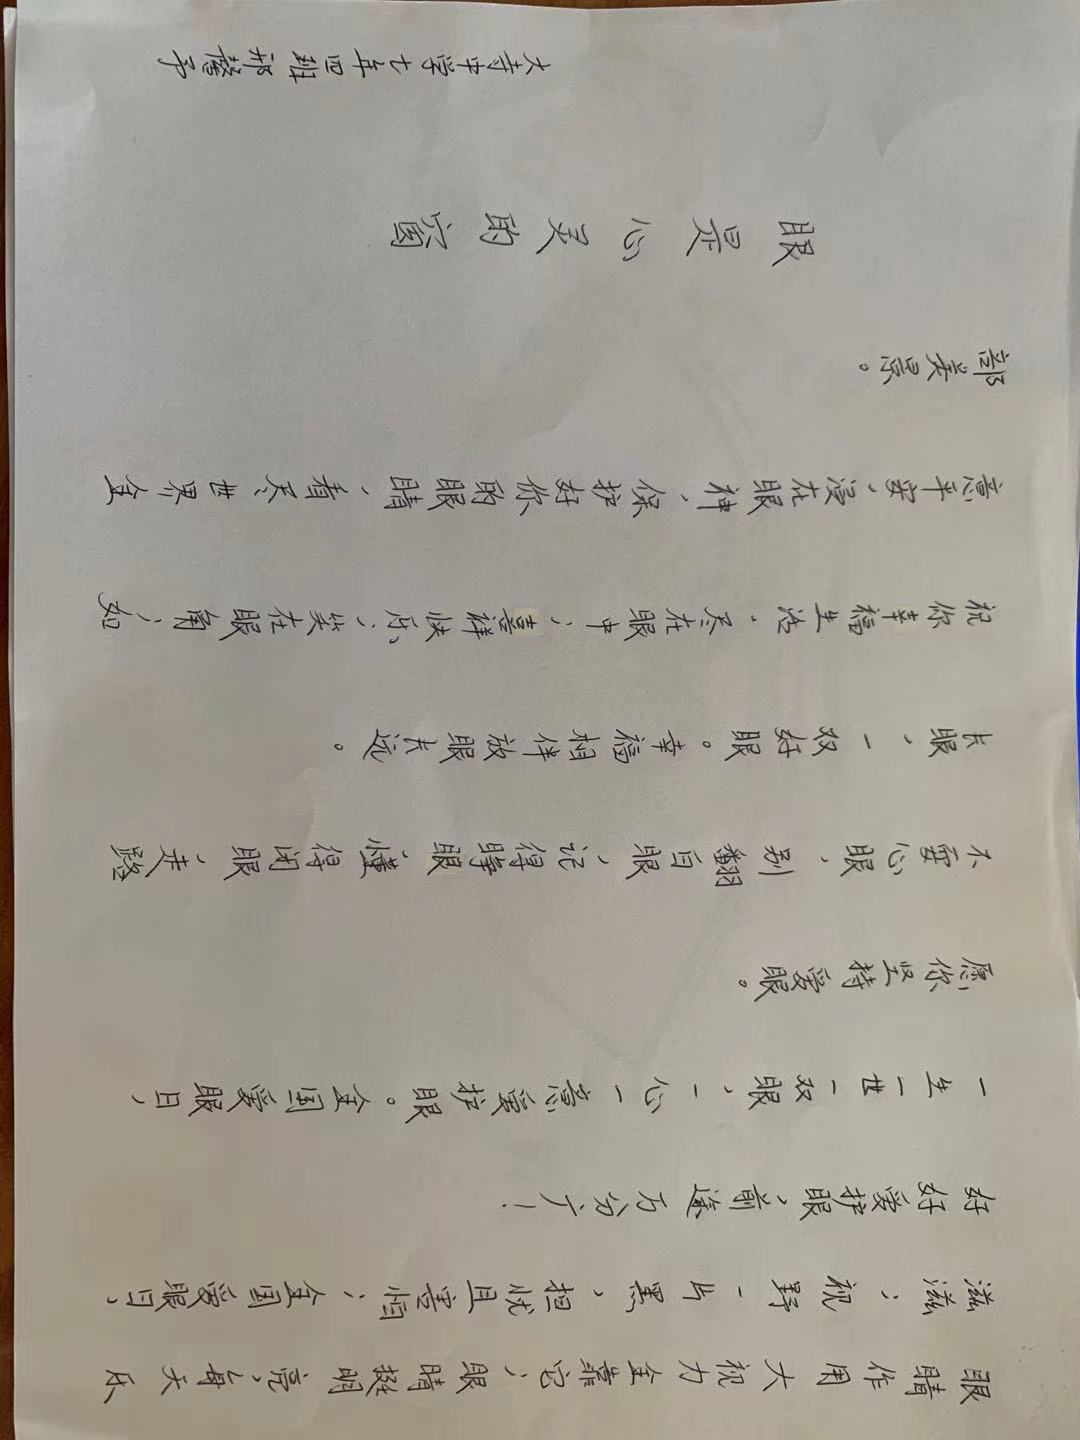 眼睛作用大视力全靠它,眼睛擦明亮,每天乐
滋滋,视野一片黑,担忧且害怕,全国爱眼日,
好好爱护眼,前途万分广!
一生一世一双眼,一心一意爱护眼。全国爱眼日,
愿你坚持爱眼。
不要心眼,别翻白眼,记得睁眼,懂得闭眼,走路
长眼,一双好眼。幸福相伴放眼长远。
祝你幸福生活,尽在眼中,喜祥快乐,笑在眼角,如
意平安,浸在眼神,保护好你的眼睛,看尽世界全
部美景。
眼是心灵的窗
大寺中学七年四班祁馨予